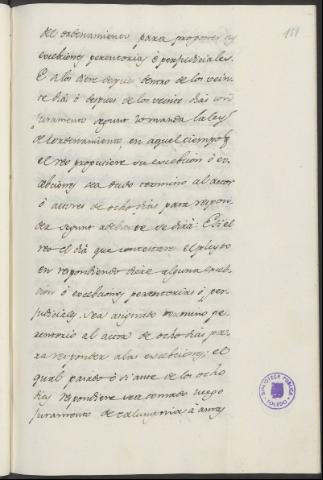 del ordenamiento para proponer sus
excebciones perentorias ó perjudiciales.
E si los diere despues dentro de los vein-
te dias ó despues de los veinte dias con
juramento segund lo manda la ley
de lordenamiento, en aquel tiempo q
el reo propusiere su excebcion ó ex-
cebciones sea dado termino al actor
ó actores de ocho dias para respon-
der segund adelante se dirá: E si el
reo el dia que contestare el pleyto
en respondiendo dixe alguna exceb-
cion ó excebciones perentorias ó per-
judiciales, sea asignado termino pe-
rentorio al actor de ocho dias pa-
ra responder a las excebciones; el
qual pasado ó si ante de los ocho
dias respondiere sea tomado luego
juramento de calumnia á amas
BIBLIOTECA PUBLICA
TOLEDO